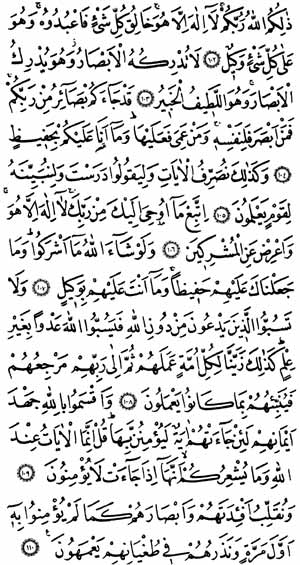 ذٰلِكُمُ اللّٰهُ رَبُّكُمْ لَٓا اِلٰهَ اِلَّا هُوَ خَالِقُ كُلِّ شَيْءٍ فَاعْبُدُوهُ وَهُوَ
عَلٰى كُلِّ شَيْءٍ وَكِيلٌ ﴿١٠٢﴾ لَا تُدْرِكُهُ الْاَبْصَارُ وَهُوَ يُدْرِكُ
الْاَبْصَارَ وَهُوَ اللَّطِيفُ الْخَبِيرُ ﴿١٠٣﴾ قَدْ جَٓاءَكُمْ بَصَٓائِرُ مِنْ رَبِّكُمْ
فَمَنْ اَبْصَرَ فَلِنَفْسِهِ وَمَنْ عَمِيَ فَعَلَيْهَا وَمَٓا اَنَا عَلَيْكُمْ بِحَفِيظٍ
﴿١٠٤﴾ وَكَذٰلِكَ نُصَرِّفُ الْاٰيَاتِ وَلِيَقُولُوا دَرَسْتَ وَلِنُبَيِّنَهُ
لِقَوْمٍ يَعْلَمُونَ ﴿١٠٥﴾ اِتَّبِعْ مَٓا اُوحِيَ اِلَيْكَ مِنْ رَبِّكَ لَٓا اِلٰهَ اِلَّا هُوَ
وَاَعْرِضْ عَنِ الْمُشْرِكِينَ ﴿١٠٦﴾ وَلَوْ شَٓاءَ اللّٰهُ مَٓا اَشْرَكُوا وَمَا
جَعَلْنَاكَ عَلَيْهِمْ حَفِيظًا وَمَٓا اَنْتَ عَلَيْهِمْ بِوَكِيلٍ ﴿١٠٧﴾ وَلَا
تَسُبُّوا الَّذِينَ يَدْعُونَ مِنْ دُونِ اللّٰهِ فَيَسُبُّوا اللّٰهَ عَدْوًا بِغَيْرِ
عِلْمٍ كَذٰلِكَ زَيَّنَّا لِكُلِّ اُمَّةٍ عَمَلَهُمْ ثُمَّ اِلٰى رَبِّهِمْ مَرْجِعُهُمْ
فَيُنَبِّئُهُمْ بِمَا كَانُوا يَعْمَلُونَ ﴿١٠٨﴾ وَاَقْسَمُوا بِاللّٰهِ جَهْدَ
اَيْمَانِهِمْ لَئِنْ جَٓاءَتْهُمْ اٰيَةٌ لَيُؤْمِنُنَّ بِهَا قُلْ اِنَّمَا الْاٰيَاتُ عِنْدَ
اللّٰهِ وَمَا يُشْعِرُكُمْ اَنَّهَٓا اِذَا جَٓاءَتْ لَا يُؤْمِنُونَ ﴿١٠٩﴾
وَنُقَلِّبُ اَفْـِٔدَتَهُمْ وَاَبْصَارَهُمْ كَمَا لَمْ يُؤْمِنُوا بِهِٓ
اَوَّلَ مَرَّةٍ وَنَذَرُهُمْ فِي طُغْيَانِهِمْ يَعْمَهُونَ ﴿١١٠﴾